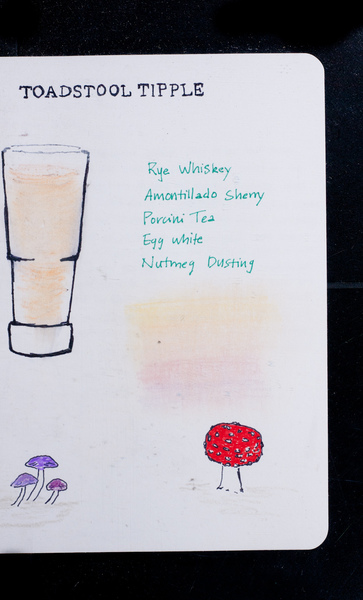 TOADSTOOL TIPPLE
Rye Whiskey
Amontillado Sherry
Porcini Tea
Egg white
Nutmeg Dusting